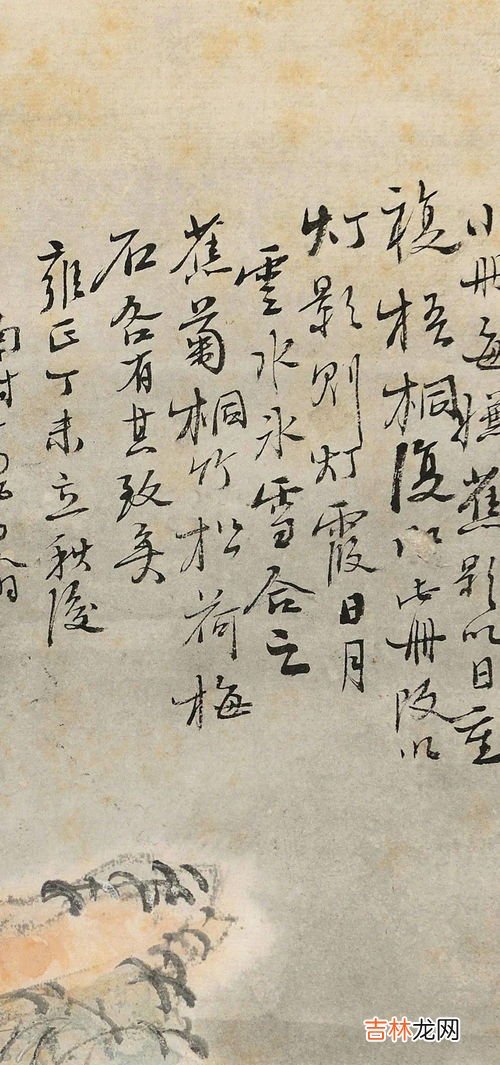 小册每抚蕉影以日重
複梧桐復以此册改以
灯影则灯霞日月
雲水氷雪合之
蕉菊桐竹松荷梅
石各有其致矣
雍正丁未立秋後
南村
吉林龙网